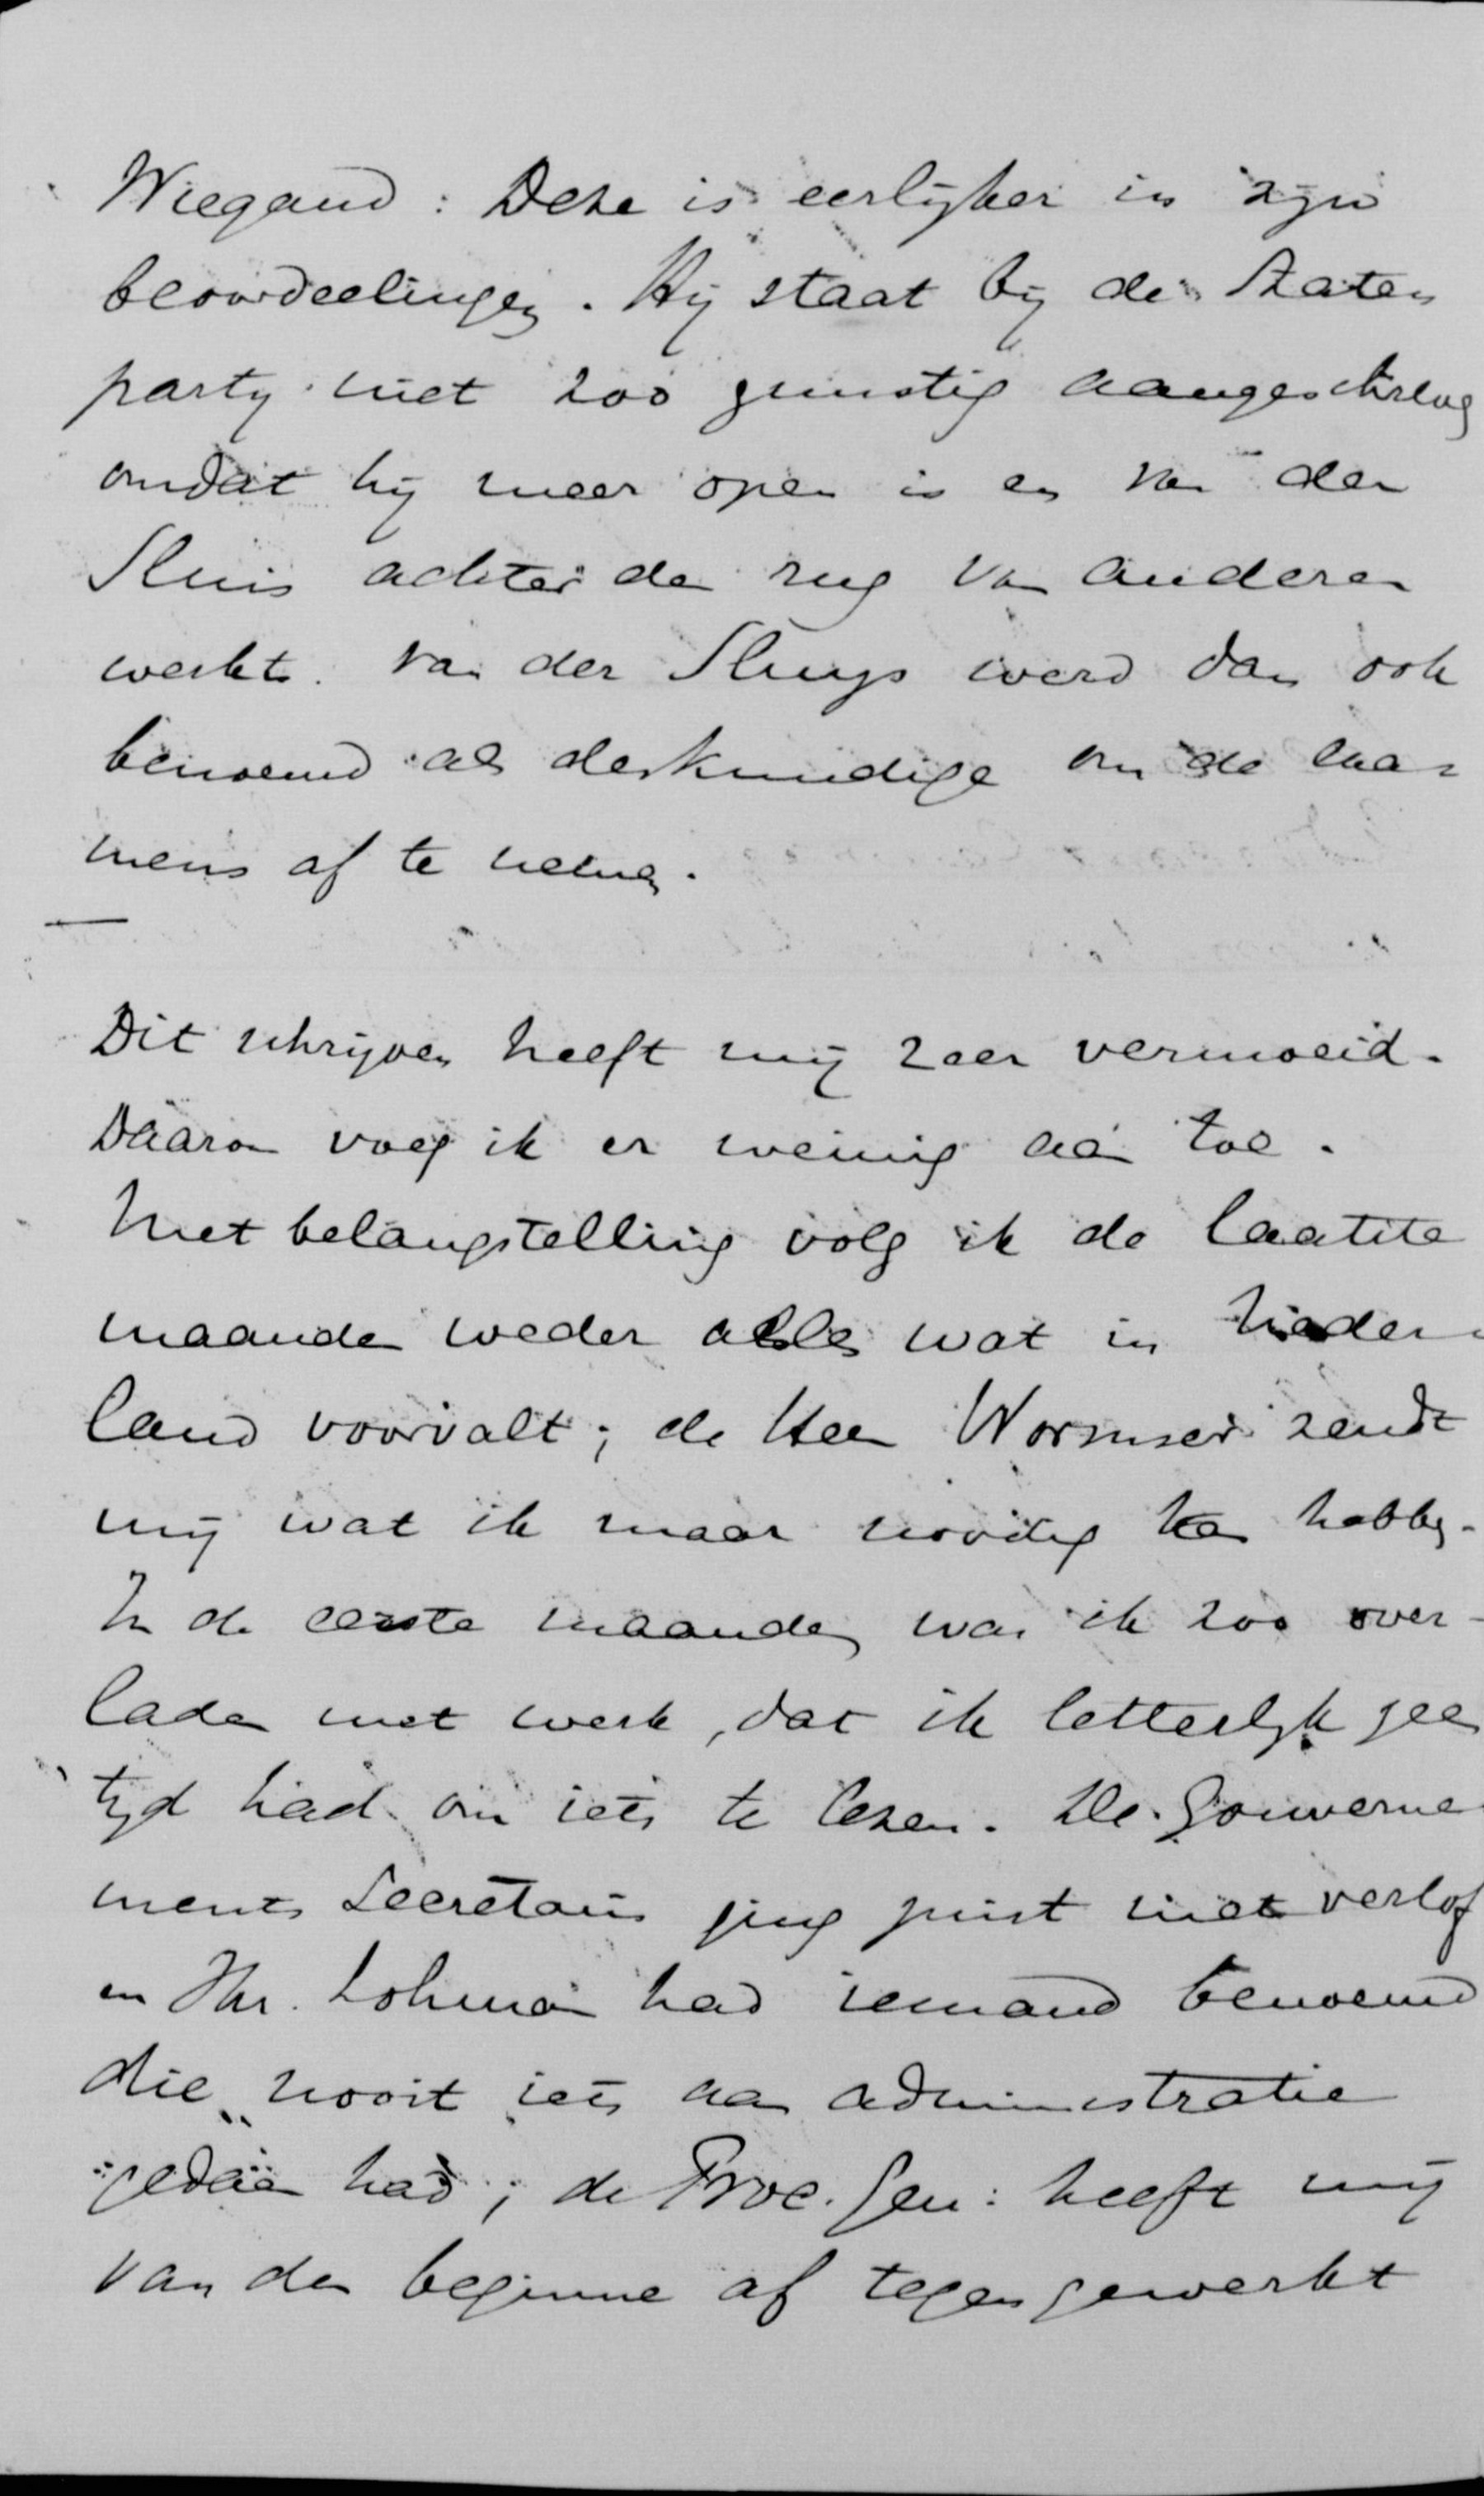 Wiegand: Deze is eerlijker in zijn
beoordeelingen. Hij staat bij de Staten
party niet zoo gunstig aangeschreven
omdat hij meer open is en van der
Sluis achter de rug van anderen
werkt. van der Sluys werd dan ook
benoemd als deskundige om de exa=
mens af te nemen.
Dit schrijven heeft mij zeer vermoeid.
Daarom voeg ik er weinig aan toe.
Met belangstelling volg ik de laatste
maanden weder alles wat in Neder-
land voorvalt; de Heer Wormser zendt
mij wat ik maar noodig kan hebben.
In de eerste maanden was ik zoo over-
laden met werk, dat ik letterlijk geen
tijd had om iets te lezen. De Gouverne
ments Secretaris ging juist met verlof
en Jhr. Lohman had iemand benoemd
die nooit iets aan administratie
gedaan had; de Proc. Gen: heeft mij
van den beginne af tegengewerkt